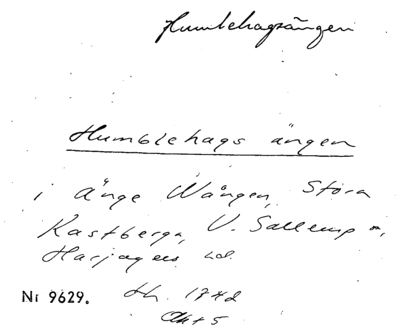 Humblehagsängen
Humblehags ängen
i Änge Wången, Stora
Kastberga, V. Sallerup s,
Harjagers hd.
Nr 9629. Lh. 1742
Akt 5